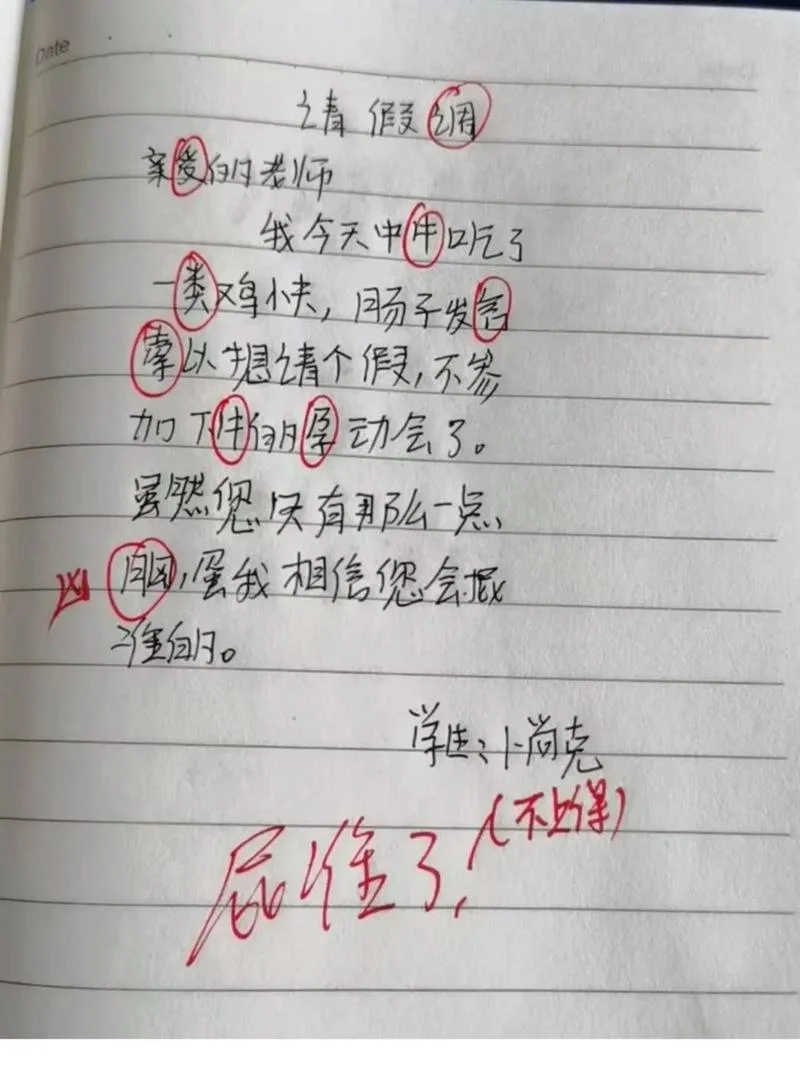 Date
请假
亲爱的老师
我今天中牛吃了
一类鸡快，肠子发
以想请个假，不参
加下牛的孕动会了。
虽然您只有那么一点
凶
，蛋我相信您会
准的。
学生：卜尚克
屁准了，（不上课）